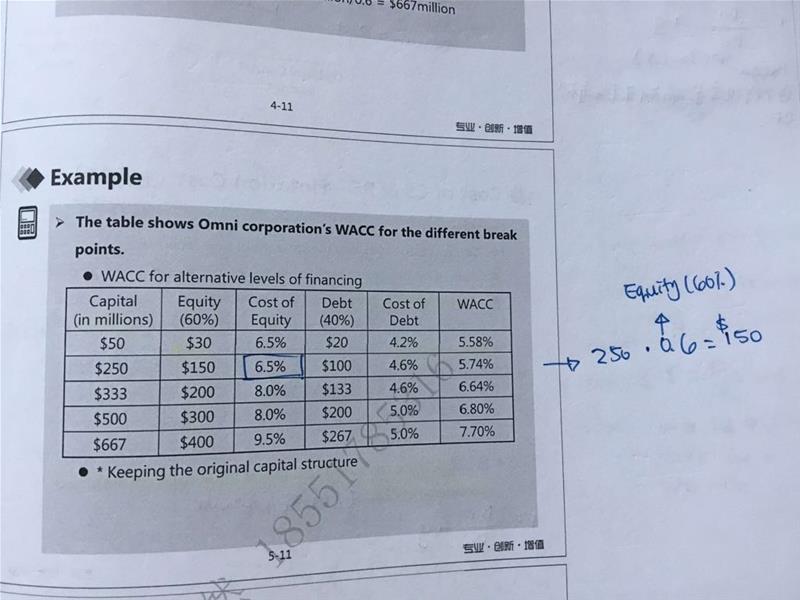 = $667million
4-11
专业·创新·增值
Example
➢ The table shows Omni corporation's WACC for the different break
points.
● WACC for alternative levels of financing
Capital (in millions) Equity (60%) Cost of Equity Debt (40%) Cost of Debt WACC
$50 $30 6.5% $20 4.2% 5.58%
$250 $150 6.5% $100 4.6% 5.74%
$333 $200 8.0% $133 4.6% 6.64%
$500 $300 8.0% $200 5.0% 6.80%
$667 $400 9.5% $267 5.0% 7.70%
● * Keeping the original capital structure
Equity (60%)
→ 250 · 0.6 = $150
5-11
专业·创新·增值